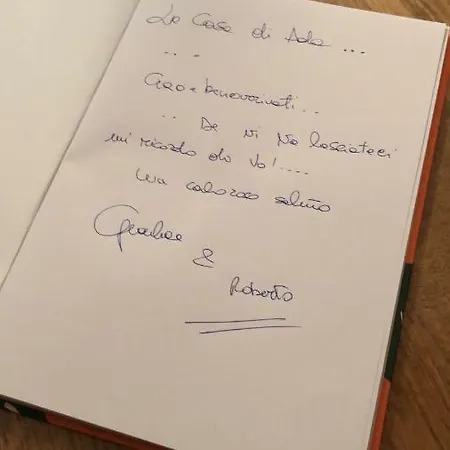 La Casa di Ada ...
...
Ciao e benvenuti..
.. Se vi va lasciateci
un ricordo di voi....
un caloroso saluto
&
Roberto